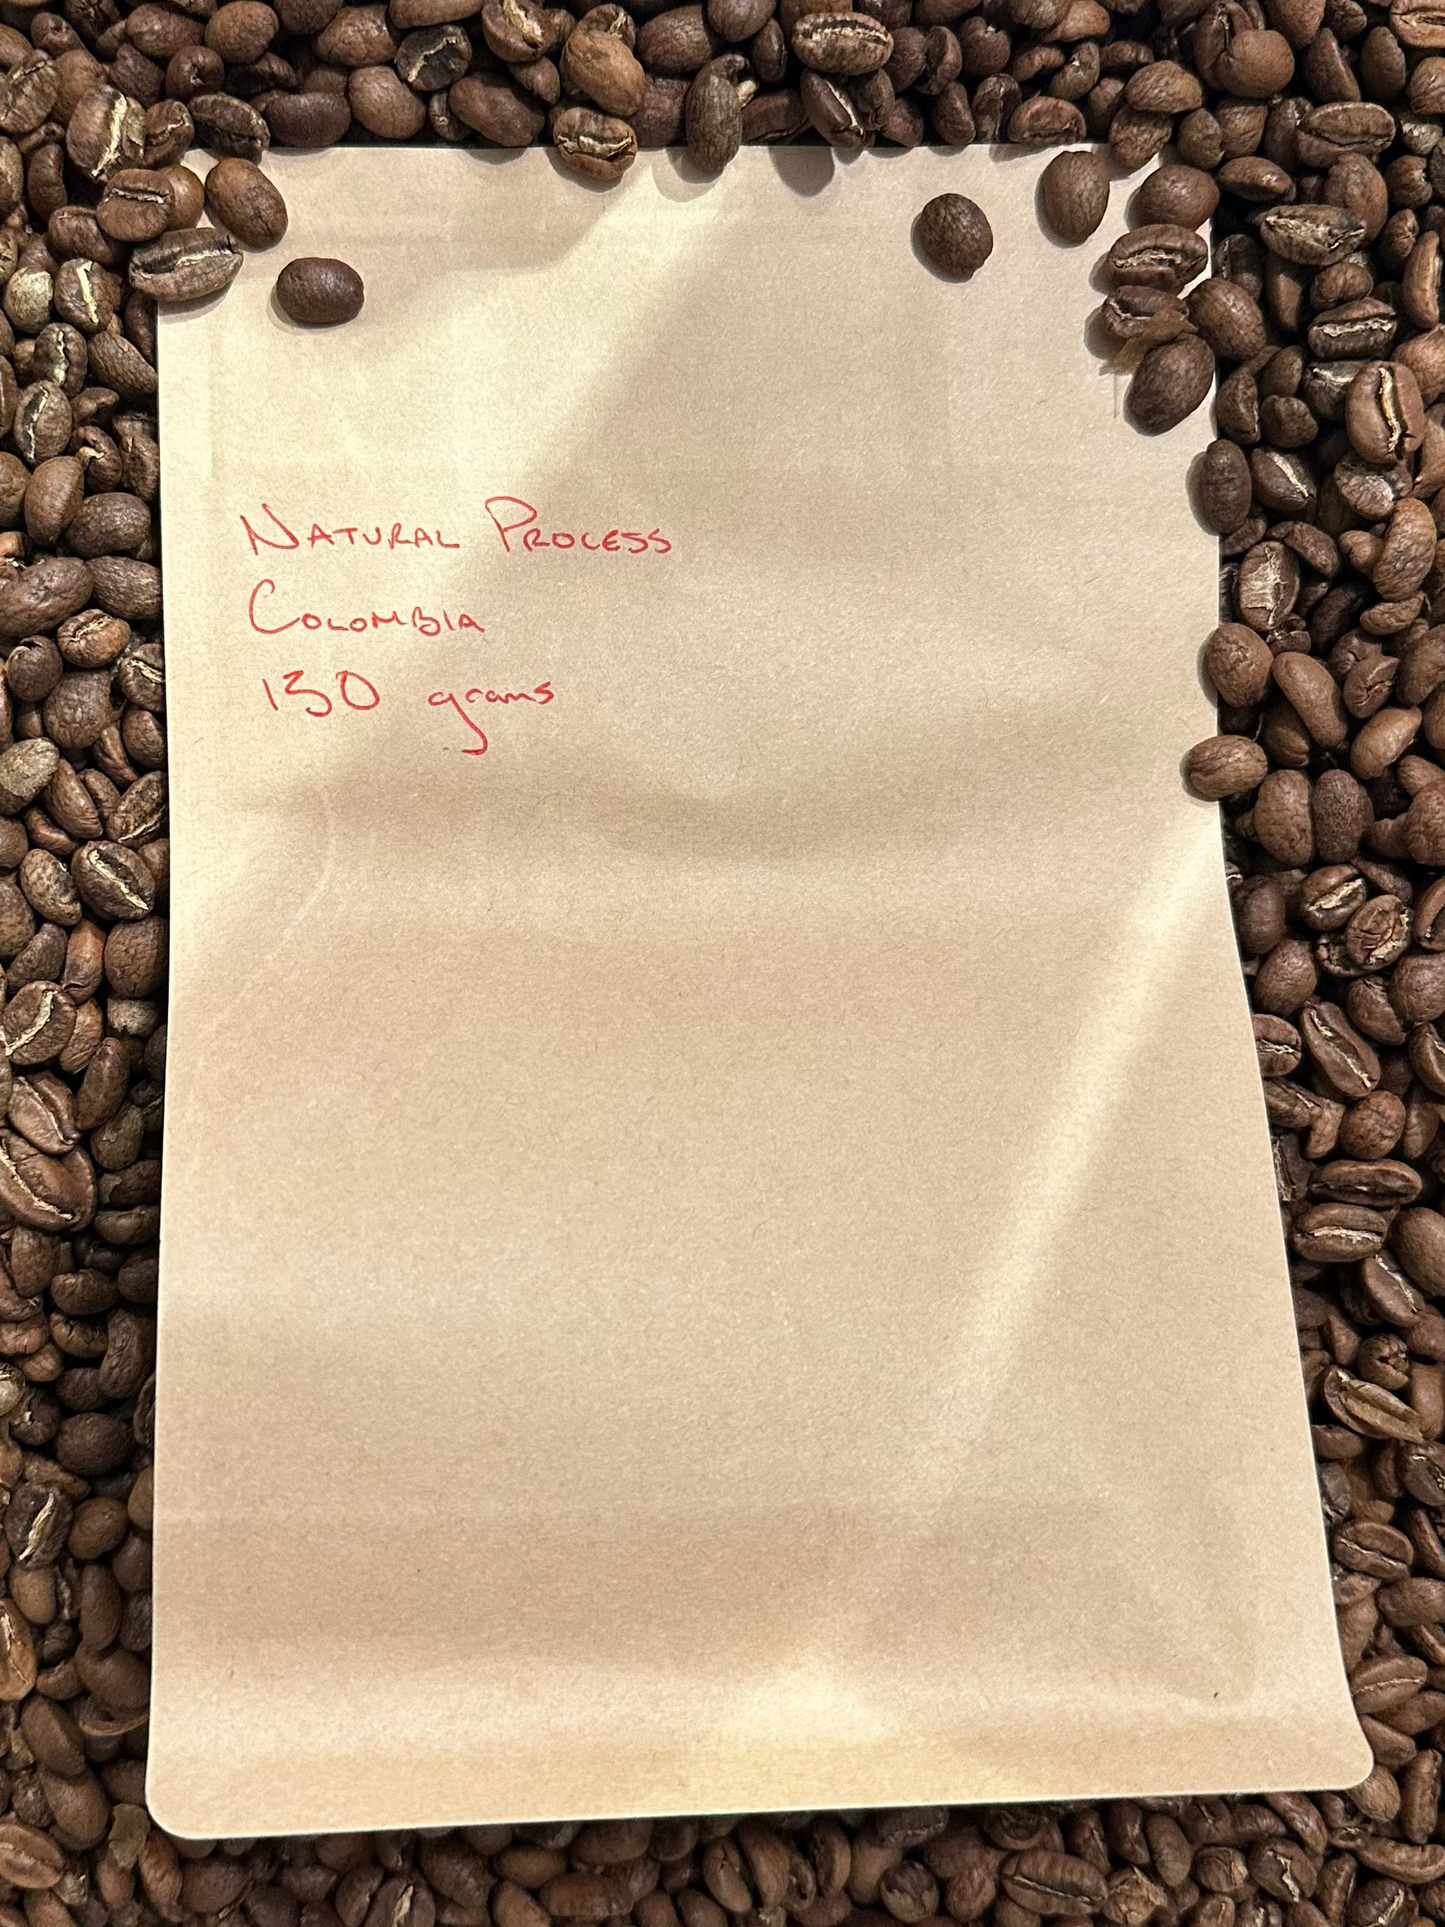 NATURAL PROCESS
COLOMBIA
130 grams